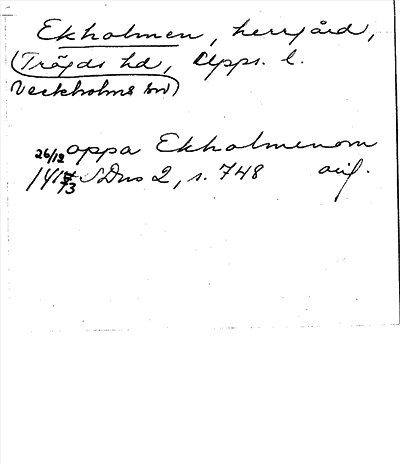 Ekholmen, herrgård,
(Trögds hd, Upps. l.
Veckholms sn)
26/12 oppa Ekholmenom
141 73 SDns 2, s. 748 avf.